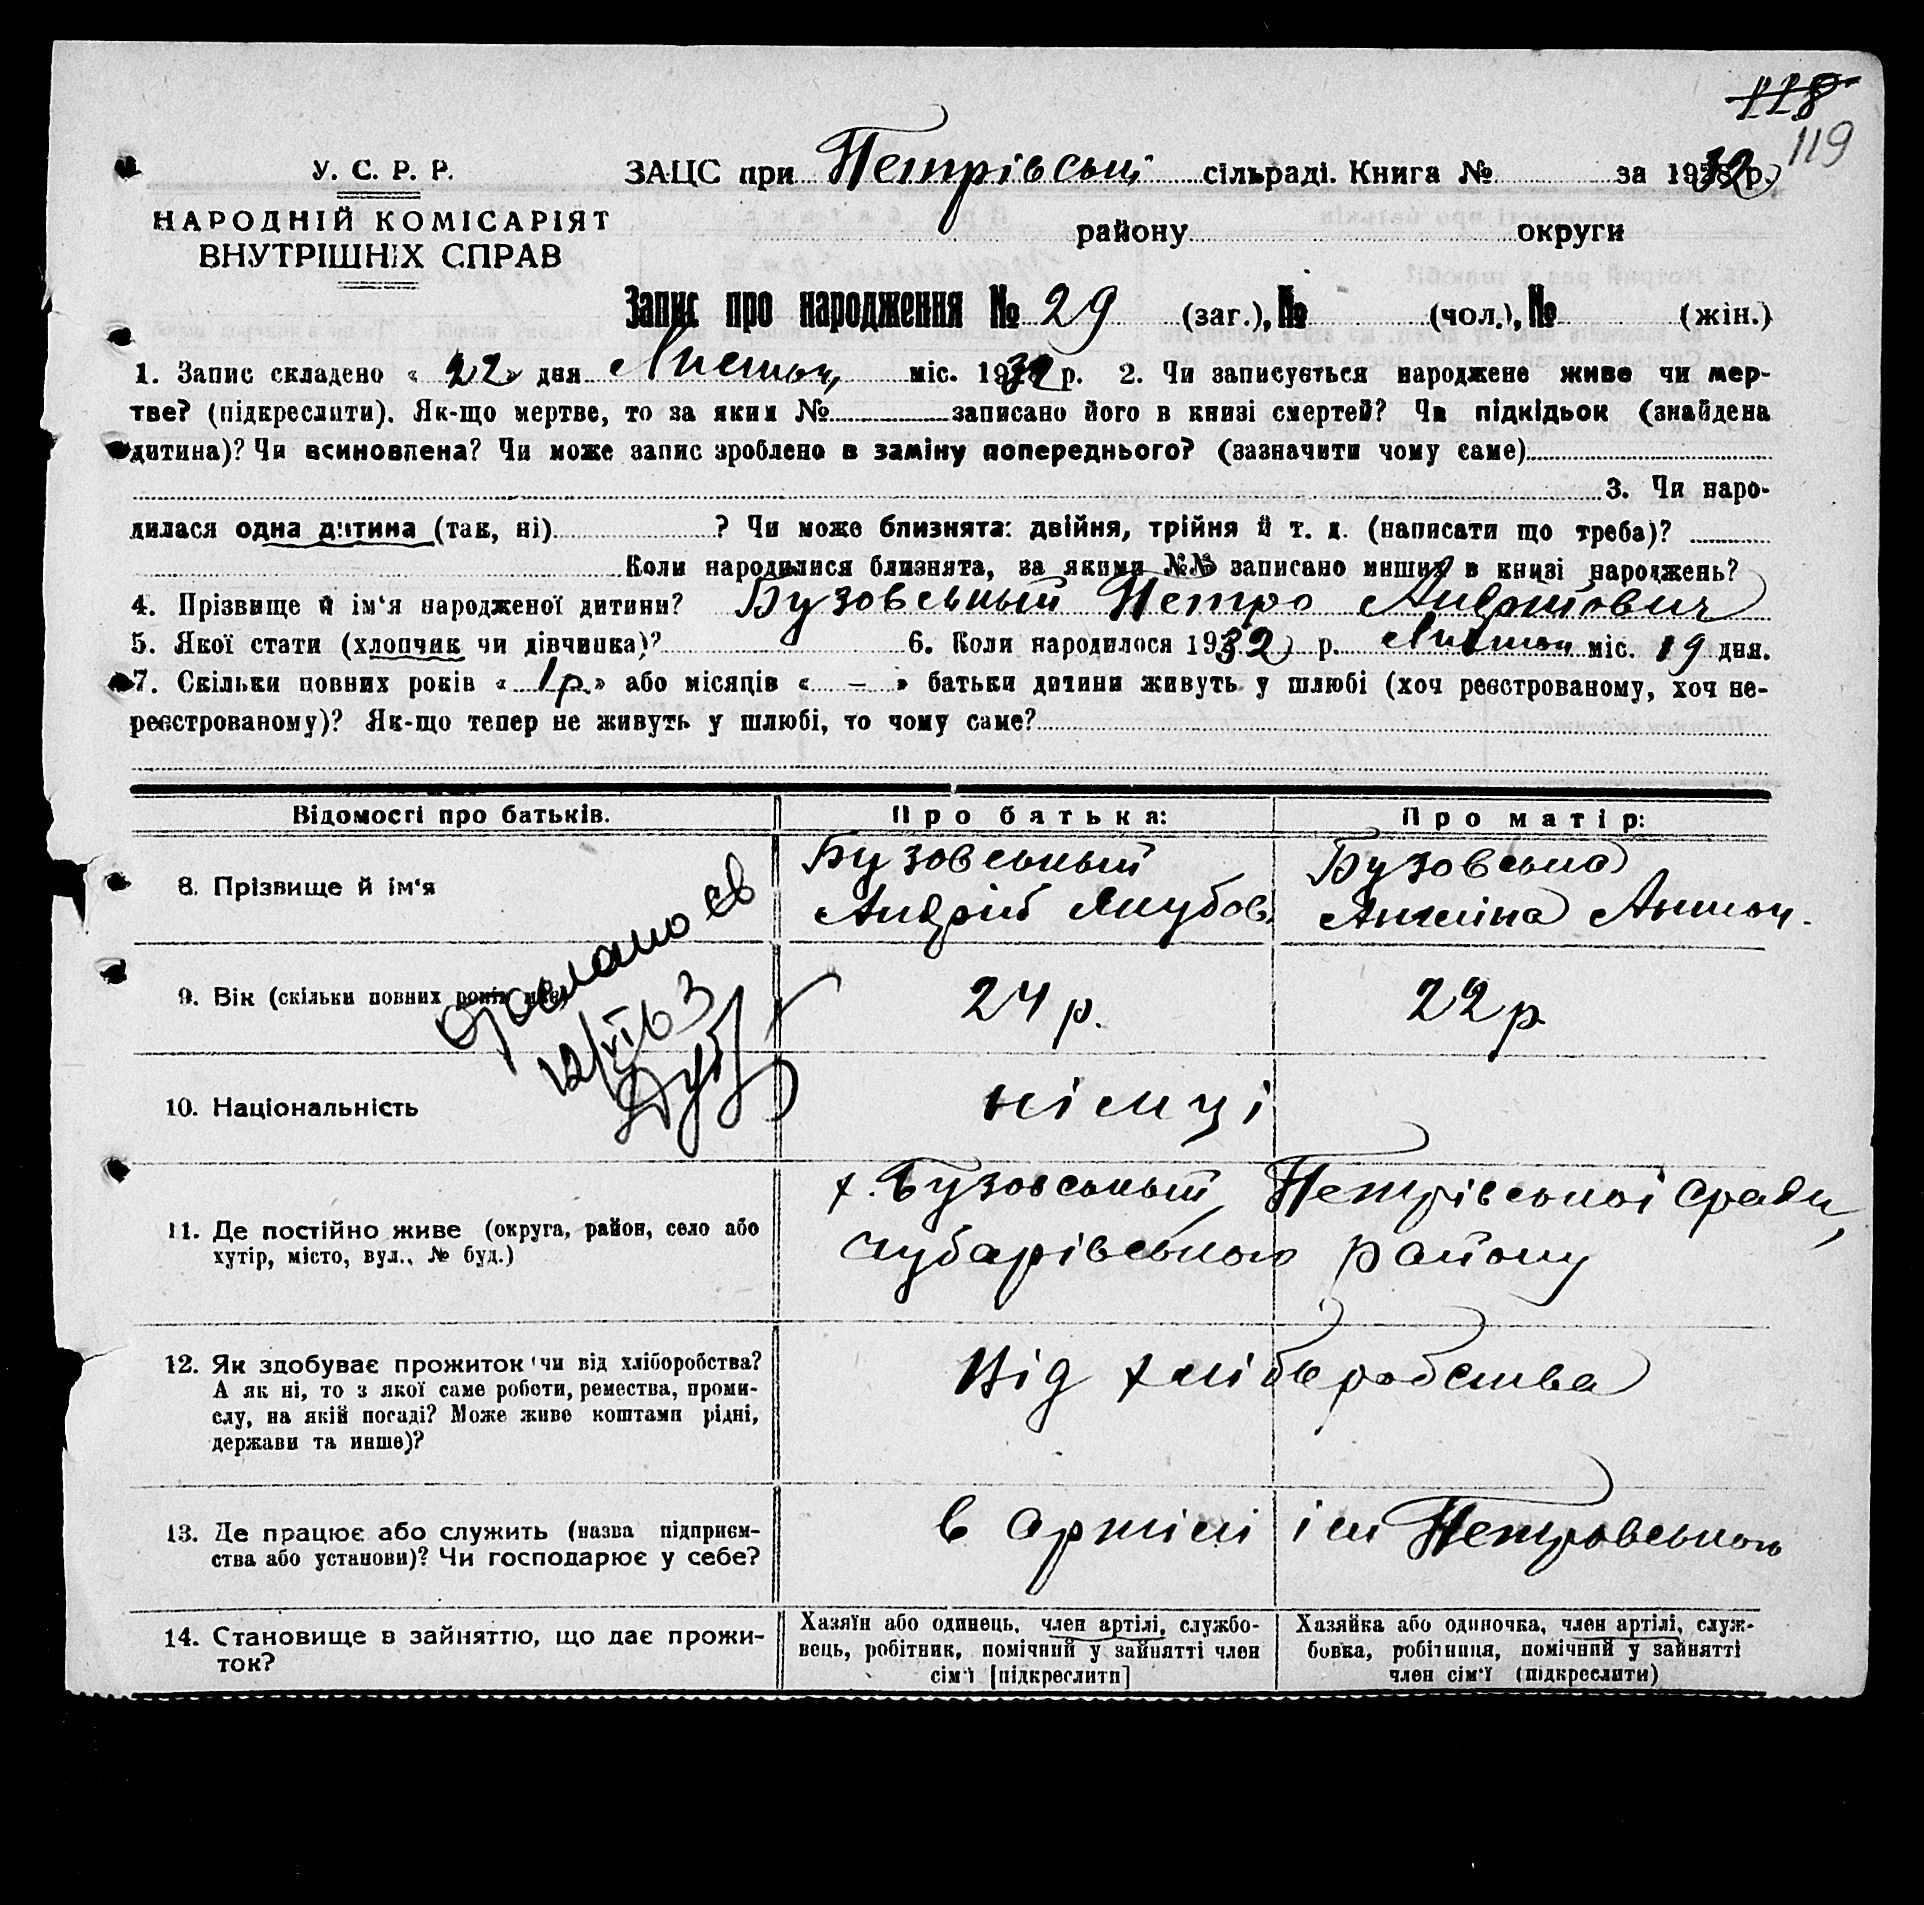 118
119
У. С. Р. Р.
НАРОДНІЙ КОМІСАРІЯТ
ВНУТРІШНІХ СПРАВ
ЗАЦС при Петрівські сільраді. Книга № за 1932 р.
району округи
Запис про народження № 29 (заг.), № (чол.), № (жін.)
1. Запис складено « 22 » дня міс. 1932 р. 2. Чи записується народжене живе чи мер-
тве? (підкреслити). Як-що мертве, то за яким № записано його в книзі смертей? Чи підкідьок (знайдена
дитина)? Чи всиновлена? Чи може запис зроблено в заміну попереднього? (зазначити чому саме)
3. Чи наро-
дилася одна дитина (так, ні) ? Чи може близнята: двійня, трійня й т. д. (написати що треба)?
Коли народилися близнята, за якими №№ записано инших в книзі народжень?
4. Прізвище й ім'я народженої дитини? Бузовський Петро Андрійович
5. Якої стати (хлопчик чи дівчинка)? 6. Коли народилося 1932 р. міс. 19 дня.
7. Скільки повних років « 1 р. » або місяців « – » батьки дитини живуть у шлюбі (хоч реєстрованому, хоч не-
реєстрованому)? Як-що тепер не живуть у шлюбі, то чому саме?
Відомості про батьків. Про батька: Про матір:
8. Прізвище й ім'я Бузовський Бузовська
Андрій Якубов. Антон.
9. Вік (скільки повних років має) 24 р. 22 р.
12/VI 63
10. Національність німці
11. Де постійно живе (округа, район, село або
хутір, місто, вул., № буд.)
х. Бузовський, Петрівської с/ради,
Чубарівського району
12. Як здобуває прожиток чи від хліборобства?
А як ні, то з якої саме роботи, ремества, проми-
слу, на якій посаді? Може живе коштами рідні,
держави та инше)?
Від хліборобства
13. Де працює або служить (назва підприєм-
ства або установи)? Чи господарює у себе?
в артілі ім Петровського
14. Становище в зайняттю, що дає прожи-
ток?
Хазяїн або одинець, член артілі, службо-
вець, робітник, помічний у зайнятті член
сім'ї [підкреслити]
Хазяйка або одиночка, член артілі, служ-
бовка, робітниця, помічний у зайнятті
член сім'ї (підкреслити)